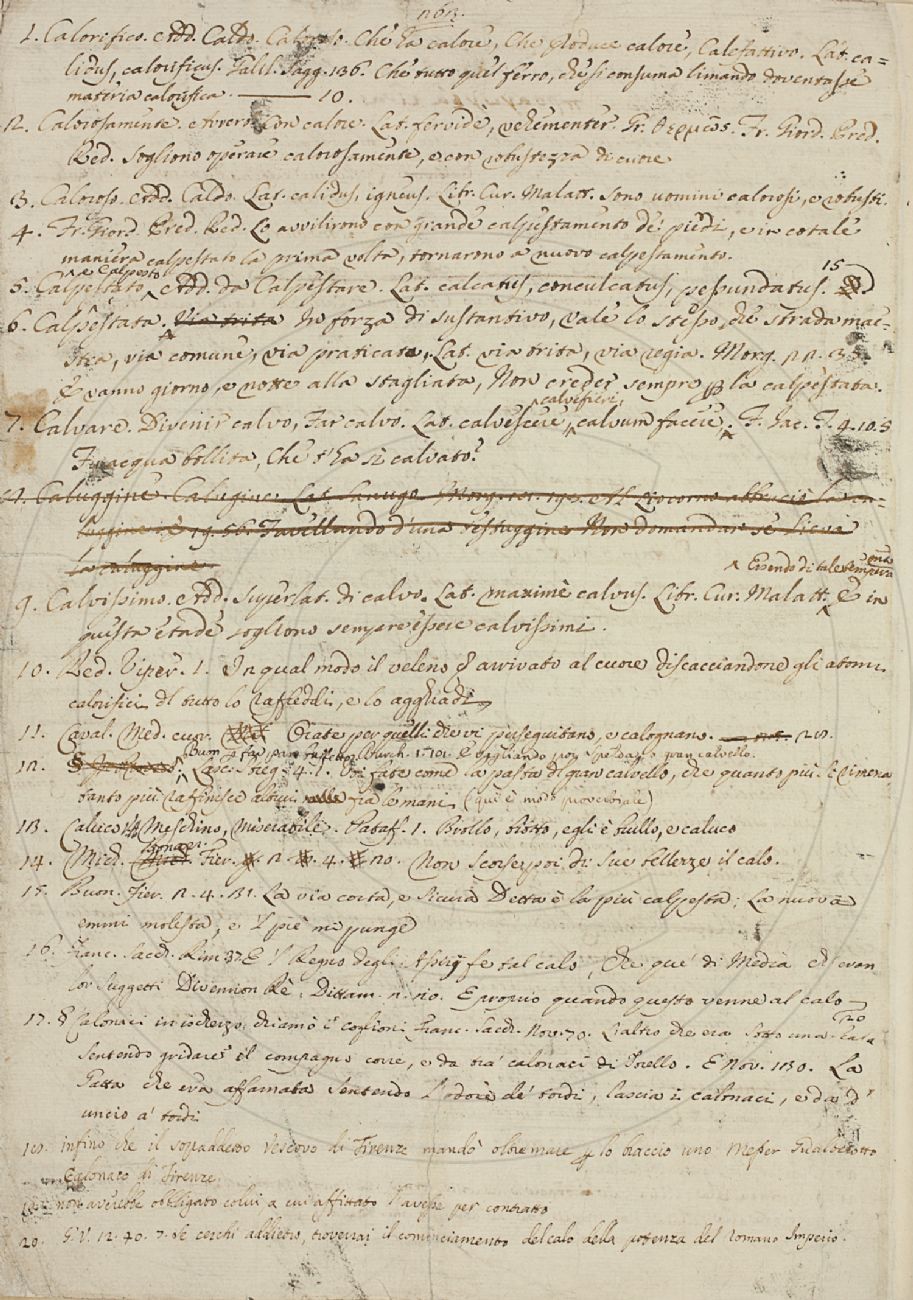 263.
1. Calorifico. Add. Caldo. Caloroso. Che ha calore, Che produce calore, Calefattivo. Lat. ca-
lidus, calorificus. Galil. Sagg. 136. Che tutto quel ferro, che si consuma limando doventasse
materia calorifica. 10.
2. Calorosamente. Avverb. Con calore. Lat. fervide, vehementer. Gr. θερμῶς. Fr. Giord. Pred.
Red. Sogliono operare calorosamente, e con robustezza di cuore
3. Caloroso. Add. Caldo. Lat. calidus, igneus. Libr. Cur. Malatt. Sono uomini calorosi, e robusti.
4. Fr. Giord. Pred. Red. Lo avvilirono con grande calpestamento de' piedi, e in cotale
maniera calpestato la prima volta, tornarono a nuovo calpestamento.
^ e Calpesto 15
5. Calpestato ^ Add. da Calpestare. Lat. calcatus, conculcatus, pessundatus.
6. Calpestata. Via trita In forza di sustantivo, vale lo stesso, che strada mae-
stra, via comune, via praticata, Lat. via trita, via regia. Morg. 22. 35.
E vanno giorno, e notte alla stagliata, Non creder sempre per la calpestata.
^ calvefieri,
7. Calvare. Divenir calvo, Far calvo. Lat. calvescere, ^ calvum facere. F. Jac. T. 4. 10. 5
Fu acqua bollita, Che t'ha sì calvato?
Caluggine. Calugine. Lat. lanugo. Morg. 19. Al Liocorno abbruciò la ca-
luggine. E 19. 56. Favellando d'una testuggine Non domandar se lieva
la caluggine
^ Essendo di tale
9. Calvissimo. Add. Superlat. di calvo. Lat. maxime calvus. Libr. Cur. Malatt. ^ E in
questa etade sogliono sempre essere calvissimi.
10. Red. Viper. 1. In qual modo il veleno arrivato al cuore discacciandone gli atomi
calorifici del tutto lo raffreddi, e lo agghiadi
11. Caval. Med. cuor. Orate per quelli che vi perseguitano, e calognano.
Burch. 1. 101. E
12. § Lasc. Streg. 4. 1. Voi fate come la pasta di gran calvello, che quanto più si rimena
tanto più rafinisce altrui fra le mani (qui è modo proverbiale)
13. Caluco. Meschino, Miserabile. Pataff. 1. Brollo, biotto, egli è bullo, e caluco
14. Buonar. Fier. 2. 4. 20. Non scorse poi di sue bellezze il calo.
15. Buon. Fier. 2. 4. La via corta, e sicura Detta è la più calpesta; La nuova
emmi molesta, e 'l piè mi punge
16. Franc. Sacch. Rim. 37. E 'l Regno degli Assirj fe tal calo, Che que' di Media ch'eran
lor suggetti Divennon Rè. Dittam. E proprio quando questo venne al calo
20
17. § Calonaci in ischerzo chiamò i coglioni Franc. Sacch. Nov. 70. L'altro che era sotto una
sentendo gridare il compagno corre, e da tra' calonaci di Torello. E Nov. 130. La
Gatta che era affamata sentendo l'odore de' tordi, lascia i calonaci, e da d'
uncio a' tordi
18. infino che il sopraddetto Vescovo di Firenze mandò oltre mare per lo braccio uno Messer
Calonaco di Firenze
19. non averebbe obbligato colui a cui affittato l'avesse per contratto
20. G. V. 12. 40. 7. Se cerchi addietro, troverai il cominciamento del calo della potenza del romano Imperio.